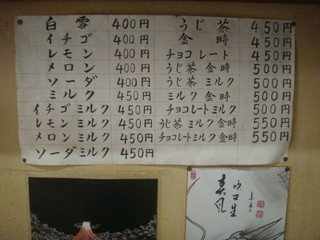 白雪 400円
イチゴ 400円
レモン 400円
メロン 400円
ソーダ 400円
ミルク 450円
イチゴミルク 450円
レモンミルク 450円
メロンミルク 450円
ソーダミルク 450円
うじ茶 450円
金時 450円
チョコレート 450円
うじ茶金時 500円
うじ茶ミルク 500円
ミルク金時 500円
チョコレートミルク 500円
うじ茶ミルク金時 550円
チョコレートミルク金時 550円